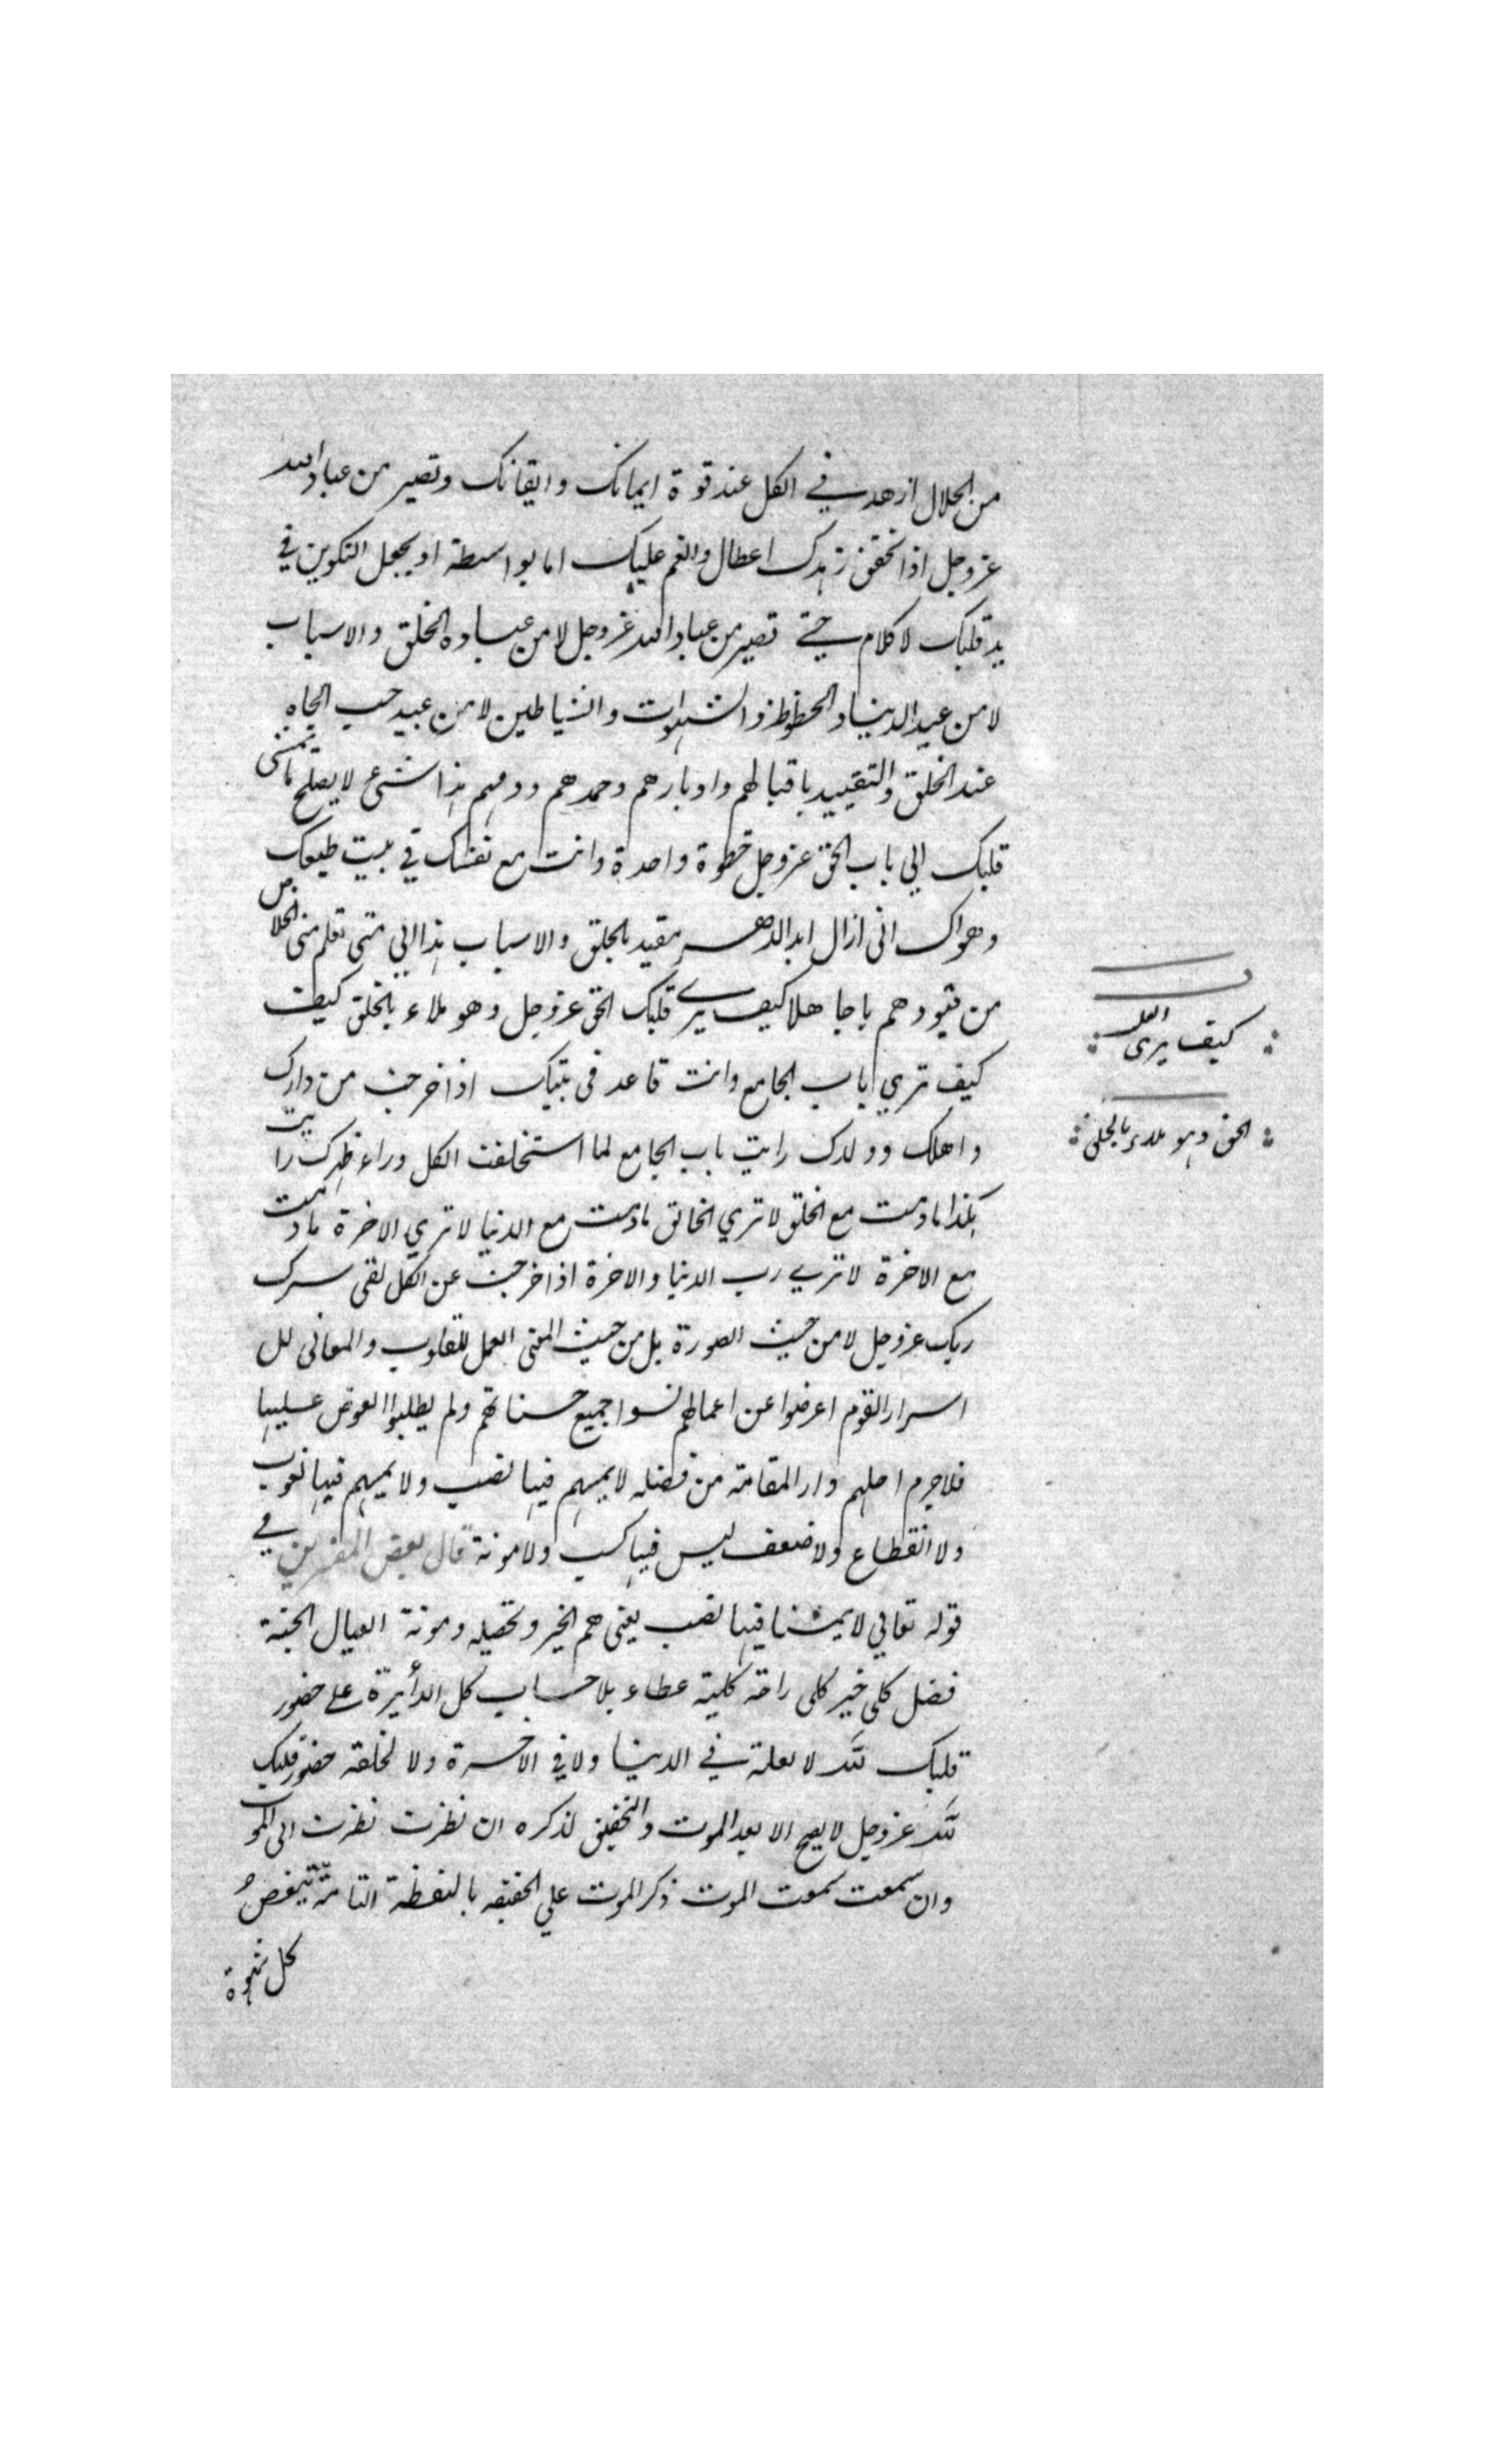 من الحلال ازهد في الكل عند قوة ايمانك وايقانك وتصير من عباد الله
عز وجل اذا تحقق زهدك اعطال وانعم عليك اما بواسطة او يجعل التكوين في
يد قلبك لا كلام حتى تصير من عباد الله عز وجل لا من عباده الخلق والاسباب
لا من عبيد الدنيا والحظوظ والشهوات والشياطين لا من عبيد حب الجاه
عند الخلق والتقييد باقبالهم وادبارهم وحمدهم وذمهم هذا شئ لا يصلح ما تمشى
قلبك الي باب الحق عز وجل خطوة واحدة وانت مع نفسك في بيت طبعك
وهواك انى ازال ابد الدهر مقيد بالخلق والاسباب هذا الي متى تعلم منى الخلاص
من قيودهم يا جاهلا كيف يرى قلبك الحق عز وجل وهو ملاء بالخلق كيف
كيف تري باب الجامع وانت قاعد في بيتك اذا خرجت من دارك
واهلك وولدك رايت باب الجامع لما استخلفت الكل وراء ظهرك رايت
هكذا ما دمت مع الخلق لا تري الخالق ما دمت مع الدنيا لا تري الاخرة ما دمت
مع الاخرة لا ترى رب الدنيا والاخرة اذا خرجت عن الكل لقى سرك
ربك عز وجل لا من حيث الصورة بل من حيث المعنى العمل للقلوب والمعانى لل
اسرار القوم اعرضوا عن اعمالهم نسوا جميع حسناتهم ولم يطلبوا العوض عليها
فلا جرم احلهم دار المقامة من فضله لا يمسهم فيها نصب ولا يمسهم فيها لغوب
ولا انقطاع ولا ضعف ليس فيها كسب ولا مونة قال بعض المفسرين في
قوله تعالي لا يمسنا فيها نصب يعنى هم الخير وتحصيله ومونة العيال الجنة
فضل كلى خير كلى راحة كلية عطاء بلا حساب كل الدأيرة على حضور
قلبك لله لا لعلة في الدنيا ولا في الاخرة ولا لخلقه حضور قلبك
لله عز وجل لا يصح الا بعد الموت والتحقيق لذكره ان نظرت نظرت الى الموت
وان سمعت سمعت الموت ذكر الموت علي الحقيقه باليقظة التامة تبغض
كل شهوة
كيف يرى العبد
الحق وهو ملاء بالخلق